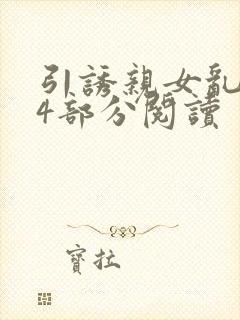 引誘親女亂
4部分閱讀
寶拉